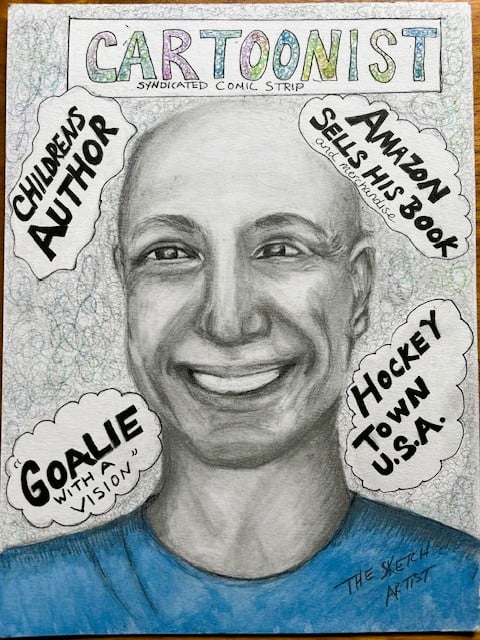 CARTOONIST
SYNDICATED COMIC STRIP
CHILDRENS
AUTHOR
AMAZON
SELLS HIS BOOK
and merchandise
"GOALIE
WITH A
VISION"
HOCKEY
TOWN
U.S.A.
THE SKETCH
ARTIST